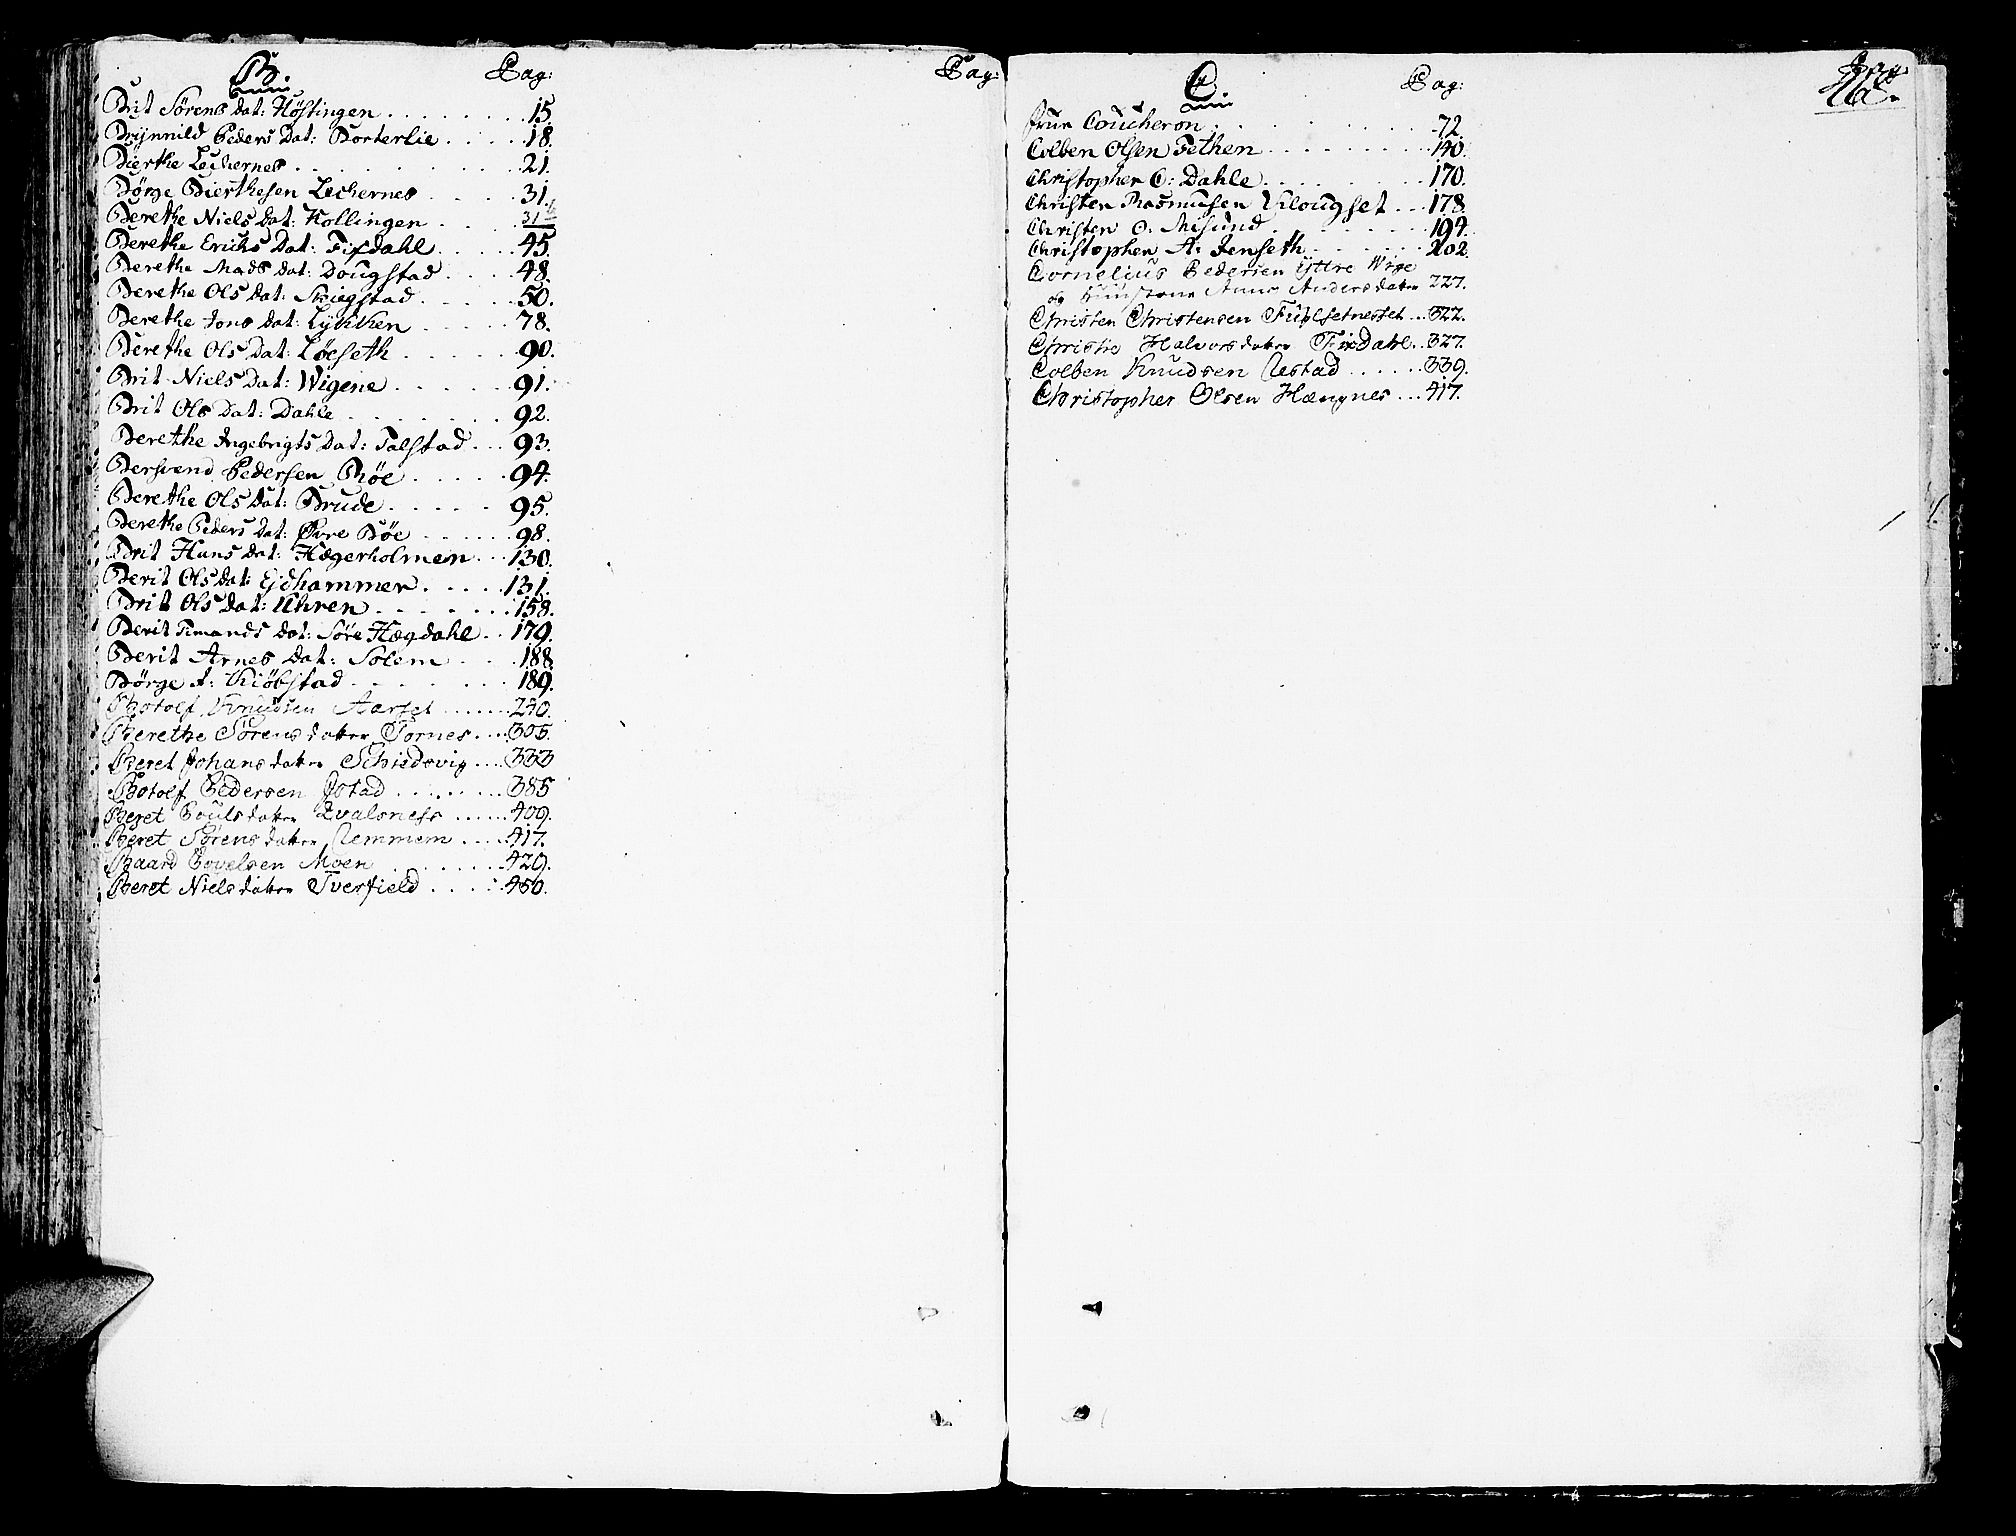 B. Pag: Pag:
Brit Sørens Dat: Høstingen 15.
Brynnild Peders Dat: Borterlie 18.
Bierthe Lechernes 21.
Børge Bierthesen Lechernes 31.
Berethe Niels Dat: Hollingen 31
Berethe Erichs Dat: Fixdahl 45.
Berethe Mads Dat: Dougstad 48.
Berethe Ols Dat: Skiegstad 50.
Berethe Jons Dat: Lykken 78.
Berethe Ols Dat: Løeseth 90.
Brit Niels Dat: Wigene 91.
Brit Ols Dat: Dahle 92.
Berethe Ingebrigts Dat: Talstad 93.
Bersvend Pedersen Bøe 94.
Berethe Ols Dat: Brude 95.
Berethe Peders Dat: Øvre Bøe 98.
Brit Hans Dat: Hægerholmen 130.
Berit Ols Dat: Ejdhammer 131.
Brit Ols Dat: Uhren 158.
Berit Amands Dat: Søre Hægdahl 179.
Berit Arnes Dat: Solem 188.
Børge A: Kiøbstad 189.
Botolf Knudsen Aarset 240.
Berethe Sørens datter Tornes 305.
Beret Johans datter Schisdsvig 333
Botolf Pedersen Istad 385
Beret Pouls datter Qvalsness 409.
Beret Sørens datter Nemmem 417.
Baard Povelsen Moen 429.
Beret Niels datter Tverfield 450.
C. Pag:
frue Coucheron 72.
Colben Olsen Fethen 140.
Christopher O: Dahle 170.
Christen Rasmussen Klougset 178.
Christen O. Misund 194.
Christopher A: Jenseth 202.
Cornelius Pedersen Yttre Wige
og Kunstene Anne Andersdatter 227.
Christen Christensen Fulsetnesset 322.
Christie Halvors datter Fixdahl 327.
Colben Knudsen Nestad 339.
Christopher Olsen Hængnes 417.